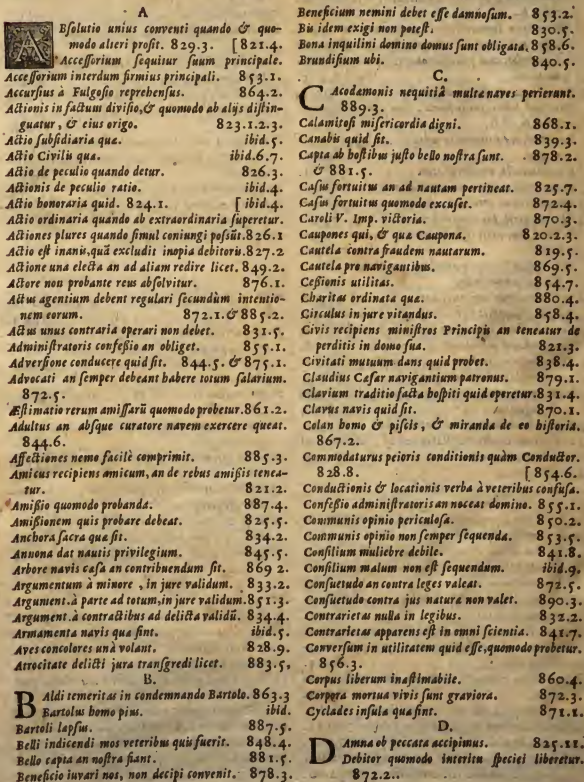 A
ABsolutio unius conventi quando & quo-
modo alteri prosit. 829.3. [821.4.
Accessorium sequitur suum principale.
Accessorium interdum firmius principali. 853.1.
Accursius à Fulgosio reprehensus. 864.2.
Actionis in factum divisio, & quomodo ab alijs distin-
guatur, & eius origo. 823.1.2.3.
Actio subsidiaria quæ. ibid.5.
Actio Civilis quæ. ibid.6.7.
Actio de peculio quando detur. 826.3.
Actionis de peculio ratio. ibid.4.
Actio honoraria quid. 824.1. [ibid.4.
Actio ordinaria quando ab extraordinaria superetur.
Actiones plures quando simul coniungi possūt. 826.1
Actio est inanis, quā excludit inopia debitoris. 827.2
Actione una electa an ad aliam redire licet. 849.2.
Actore non probante reus absolvitur. 876.1.
Actus agentium debent regulari secundùm intentio-
nem eorum. 872.1. & 885.2.
Actus unus contraria operari non debet. 831.5.
Administratoris confessio an obliget. 855.1.
Adversione conducere quid sit. 844.5. & 875.1.
Advocati an semper debeant habere totum salarium.
872.5.
Æstimatio rerum amissarū quomodo probetur. 861.2.
Adultus an absque curatore navem exercere queat.
844.6.
Affectiones nemo facilè comprimit. 885.3.
Amicus recipiens amicum, an de rebus amissis tenea-
tur. 821.2.
Amissio quomodo probanda. 887.4.
Amissionem quis probare debeat. 825.5.
Anchora sacra quæ sit. 834.2.
Annona dat nautis privilegium. 845.5.
Arbore navis cæsa an contribuendum sit. 869 2.
Argumentum à minore, in jure validum. 833.2.
Argument. à parte ad totum, in jure validum. 851.3.
Argument. à contractibus ad delicta validū. 834.4.
Armamenta navis quæ sint. ibid.5.
Aves concolores unà volant. 828.9.
Atrocitate delicti jura transgredi licet. 883.5,
B.
BAldi temeritas in condemnando Bartolo. 863.3
Bartolus homo pius. ibid.
Bartoli lapsus. 887.5.
Belli indicendi mos veteribus quis fuerit. 848.4.
Bello capta an nostra fiant. 881.5.
Beneficio iuvari nos, non decipi convenit. 878.3.
Beneficium nemini debet esse damnosum. 853.2.
Bis idem exigi non potest. 830.5.
Bona inquilini domino domus sunt obligata. 858.6.
Brundisium ubi. 840.5.
C.
CAcodæmonis nequitiâ multa naves perierunt.
889.3.
Calamitosi misericordia digni. 868.1.
Canabis quid sit. 839.3.
Capta ab hostibus justo bello nostra sunt. 878.2.
& 881.5.
Casus fortuitus an ad nautam pertineat. 825.7.
Casus fortuitus quomodo excuset. 872.4.
Caroli V. Imp. victoria. 870.3.
Caupones qui, & quæ Caupona. 820.2.3.
Cautela contra fraudem nautarum. 819.5.
Cautela pro navigantibus. 869.5.
Cessionis utilitas. 854.7.
Charitas ordinata quæ. 880.4.
Circulus in jure vitandus. 858.4.
Civis recipiens ministros Principis an teneatur de
perditis in domo sua. 821.3.
Civitati mutuum dans quid probet. 838.4.
Claudius Cæsar navigantium patronus. 879.1.
Clavium traditio facta hospiti quid operetur. 831.4.
Clavus navis quid sit. 870.1.
Colan homo & piscis, & miranda de eo historia.
867.2.
Commodaturus peioris conditionis quàm Conductor.
828.8. [854.6.
Conductionis & locationis verba à veteribus confusa.
Confessio administratoris an noceat domino. 855.1.
Communis opinio periculosa. 850.2.
Communis opinio non semper sequenda. 853.5.
Consilium muliebre debile. 841.8.
Consilium malum non est sequendum. ibid.9.
Consuetudo an contra leges valeat. 872.5.
Consuetudo contra jus natura non valet. 890.3.
Contrarietas nulla in legibus. 832.2.
Contrarietas apparens est in omni scientia. 841.7.
Conversum in utilitatem quid esse, quomodo probetur.
856.3.
Corpus liberum inæstimabile. 860.4.
Corpora mortua vivis sunt graviora. 872.3.
Cyclades insulæ quæ sint. 871.1.
D.
DAmna ob peccata accipimus. 825.11.
Debitor quomodo interitu speciei liberetur.
872.2.